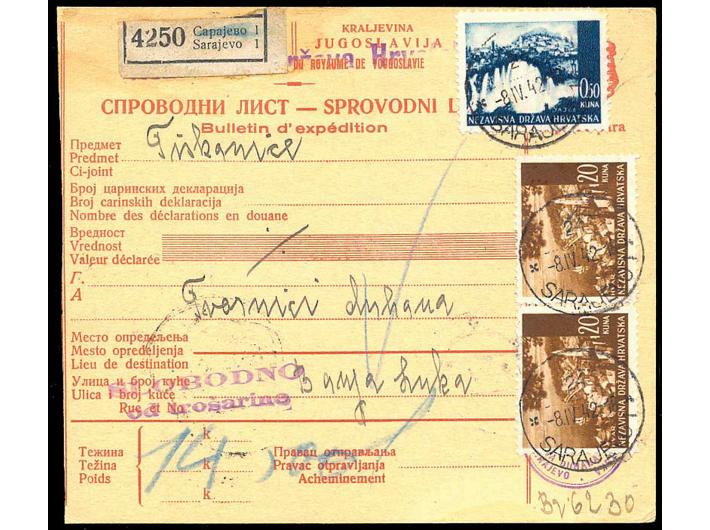 4250 Сарајево 1
Sarajevo 1
KRALJEVINA
JUGOSLAVIJA
DU ROYAUME DE YOUGOSLAVIE
0.50
KUNA
NEZAVISNA DRŽAVA HRVATSKA
-8.IV.42
SARAJEVO
СПРОВОДНИ ЛИСТ — SPROVODNI L
Bulletin d'expédition
Предмет
Predmet Tiskanice
Ci-joint
Број царинских декларација
Broj carinskih deklaracija
Nombre des déclarations en douane
Вредност
Vrednost
Valeur déclarée
1.20
KUNA
NEZAVISNA DRŽAVA HRVATSKA
-8.IV.42
SARAJEVO
Г.
А Tvornici duhana
Место опредељења
Mesto opredeljenja
Lieu de destination
Улица и број куће
Ulica i broj kuće Banja Luka
Rue et No
SLOBODNO
od trošarine
1.20
KUNA
NEZAVISNA DRŽAVA HRVATSKA
-8.IV.42
SARAJEVO
Тежина k
Težina k
Poids k
14
Правац отправљања
Pravac otpravljanja
Acheminement